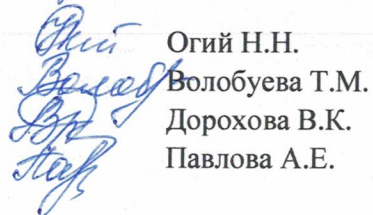 Огий Н.Н.
Волобуева Т.М.
Дорохова В.К.
Павлова А.Е.